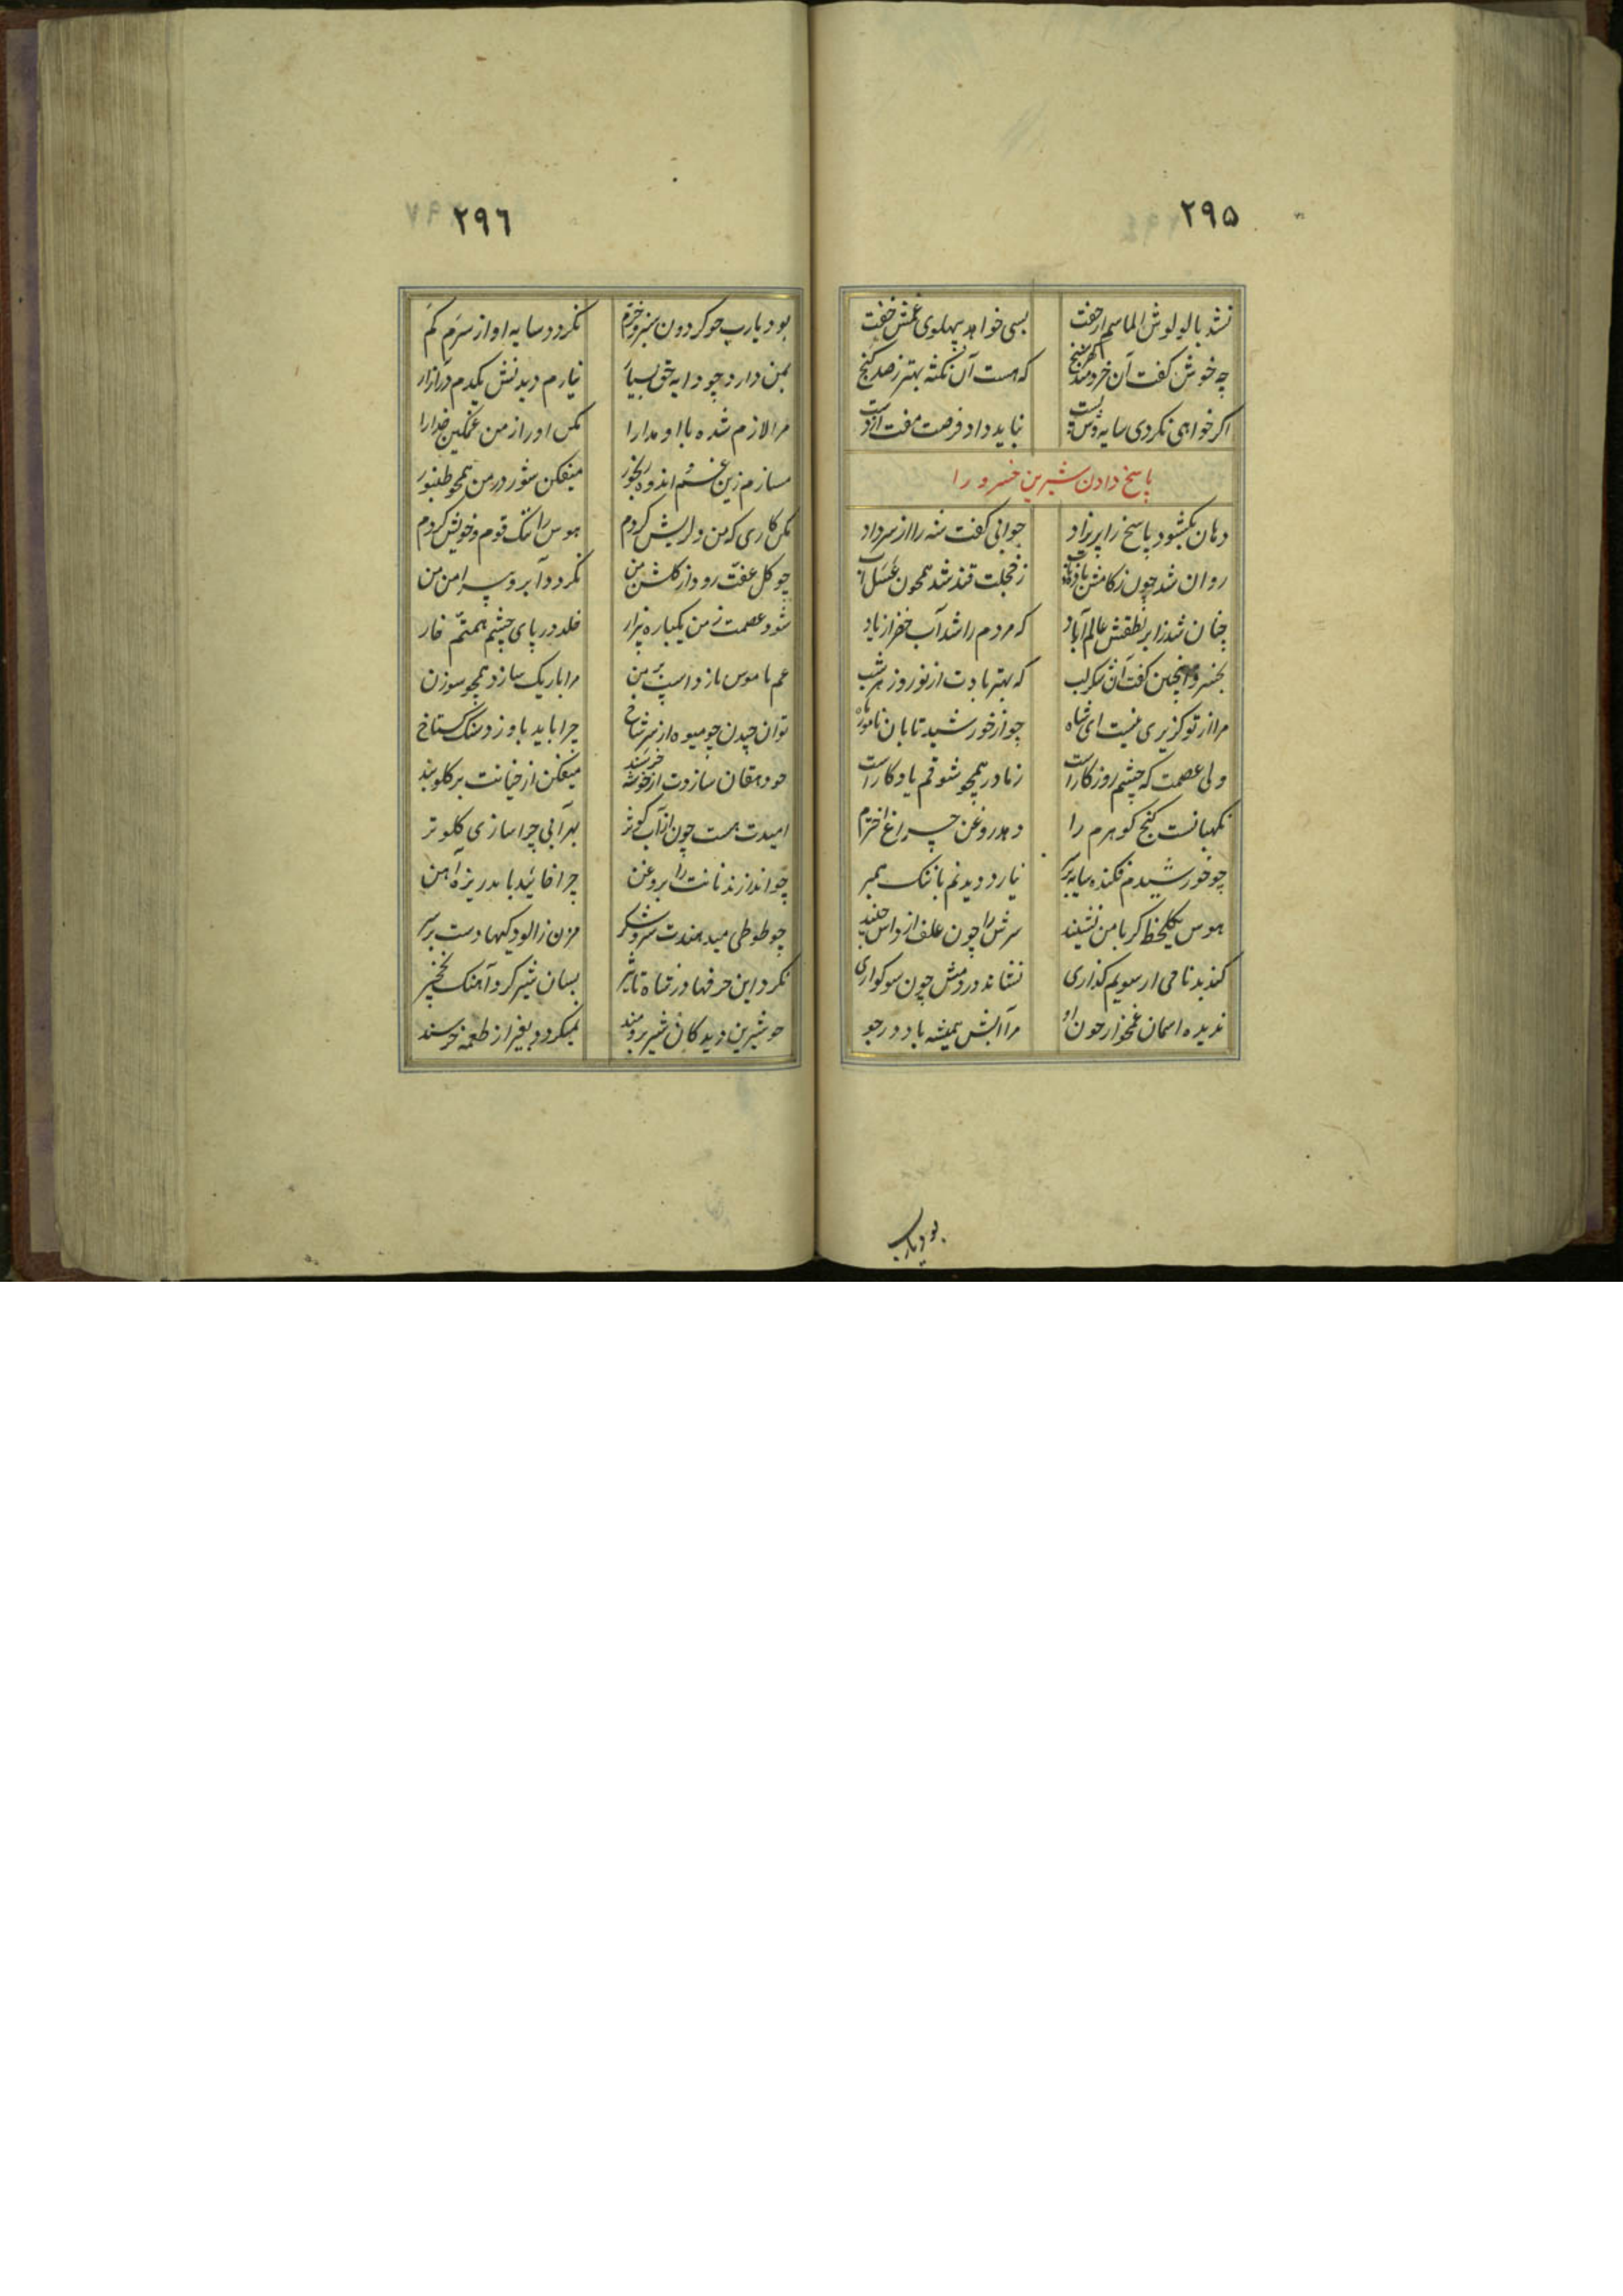 ۲۹۵
نشد با لولوش الماسم ار جفت بسی خواهد پهلوی غمش خفت
چه خوش گفت آن خردمند گهرسنج که هست آن نکته بهتر ز صد گنج
اگر خواهی نگردی سایه وش پست نباید داد فرصت مفت از دست
پاسخ دادن شیرین خسرو را
دهان بگشود پاسخ را پریزاد جوانی گفت شه را از سر داد
روان شد چون ز کامش ز خجلت قند شد همچون عسل آب
چنان شد ز ابر نطقش عالم آباد که مردم را شد آب خضر از یاد
بخسرو اینچنین گفت آن شکرلب که بهتر بادت از نوروز هر شب
مرا از تو گزیری نیست ای شاه چو از خورشید تابان
ولی عصمت که چشم روزگار است ز مادر همچو شوقم یادگار است
نگهبانست گنج گوهرم را دهد روغن چراغ اخترم را
چو خورشیدم فکنده سایه بر سر نیارد دیدنم با ننگ همبر
هوس یکلحظه گر با من نشیند سرش را چون علف از داس چیند
کند بدنامی ار سویم گذاری نشاند در دمش چون سوگواری
ندیده آسمان غمخوار چون او مرا آبش همیشه باد در جو
بود یارب
۲۹٦
بود یارب چو گردون سبز و خرم نگردد سایه او از سرم کم
بمن دارد چو دایه حق بسیار نیارم دیدنش یکدم در آزار
مرا لازم شده با او مدارا مکن او را ز من غمگین خدا را
مسازم زین غم و اندوه رنجور میفکن شور در من همچو طنبور
مکن کاری که من دلریش گردم هوس را ننگ قوم و خویش گردم
چو گل عفت رود از گلشن من نگردد آبرو پیرامن من
شود عصمت ز من یکباره بیزار خلد در پای چشم همتم خار
غم ناموس باز واسپس من مرا باریک سازد همچو سوزن
توان چیدن چو میوه از سر شاخ چرا باید باو زد سنگ گستاخ
چو دهقان سازدت از خوشه خرسند میفکن از خیانت بر گلو بند
امیدت هست چون از آب کوثر بهر آبی چرا سازی گلو تر
چو اندازند نانت را بروغن چرا خائید باید ریزه آهن
چو طوطی میدهندت سر و شکر مزن ز آلودگیها دست بر سر
نکرد این حرفها در شاه تاثیر بسان شیر کرد آهنگ نخچیر
چو شیرین دید کان شیر برومند نمیگردد بغیر از طعمه خرسند